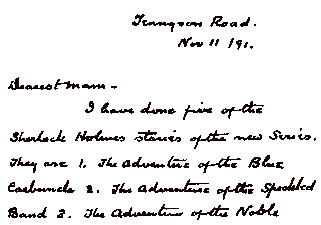 Tennyson Road.
Nov 11/91.
Dearest Mam –
I have done five of the
Sherlock Holmes stories of the new Series.
They are 1. The Adventure of the Blue
Carbuncle 2. The Adventure of the Speckled
Band 3. The Adventure of the Noble